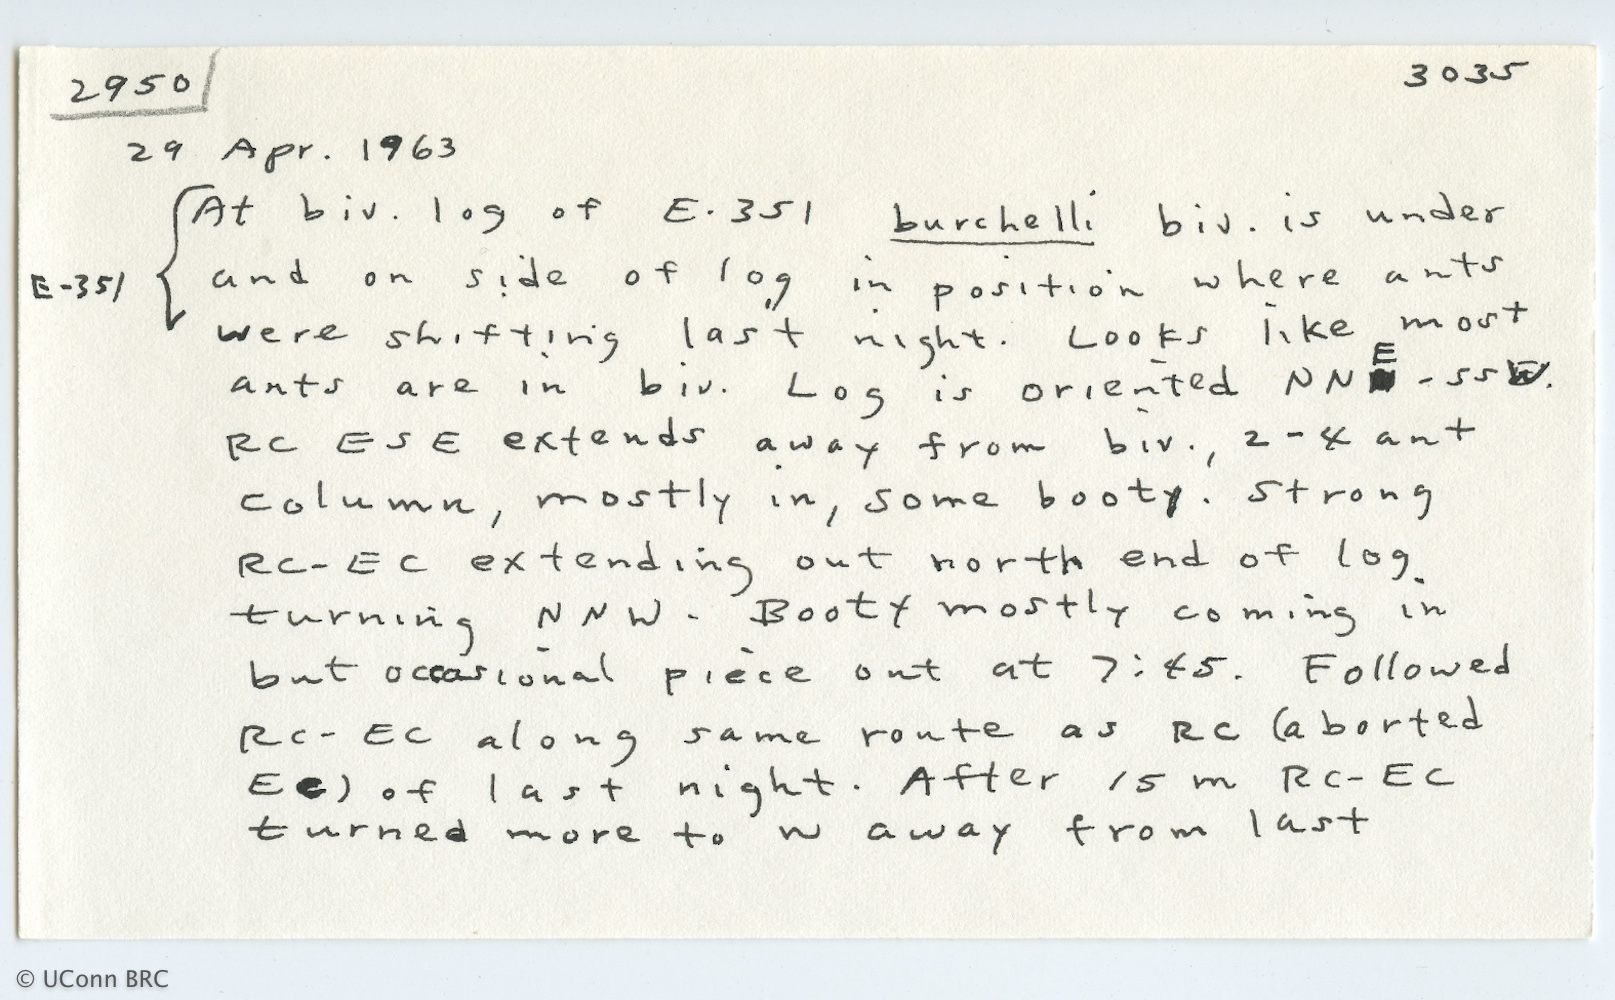 2950
3035
29 Apr. 1963
At biv. log of E-351 burchelli biv. is under
E-351
and on side of log in position where ants
were shifting last night. Looks like most
ants are in biv. Log is oriented NNE-SSW.
RC ESE extends away from biv., 2-4 ant
column, mostly in, some booty. Strong
RC-EC extending out north end of log
turning NNW. Booty mostly coming in
but occasional piece out at 7:45. Followed
RC-EC along same route as RC (aborted
EC) of last night. After 15 m RC-EC
turned more to W away from last
© UConn BRC